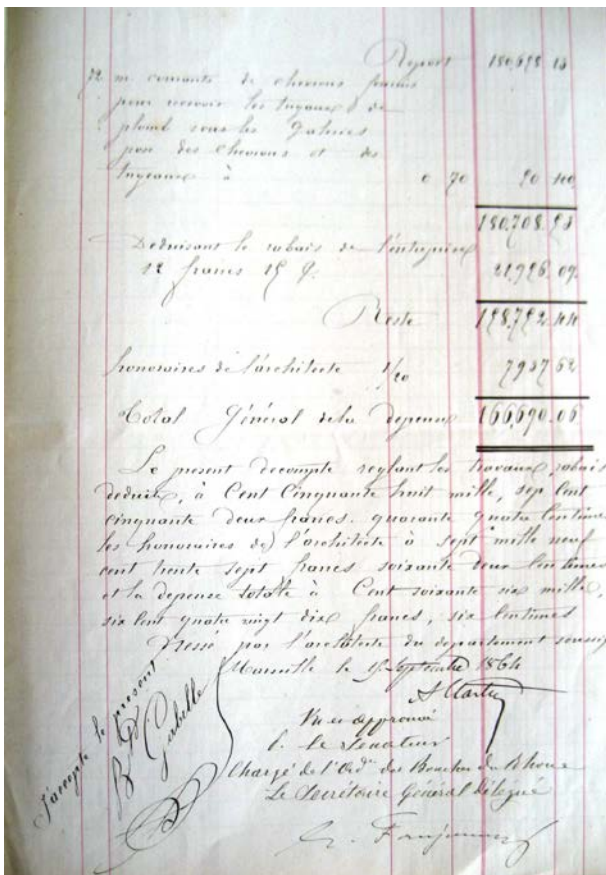 Report 180,658 13
72 m. courants de chevrons
pour recevoir les tuyaux de
plomb sous les galeries
pose des chevrons et des
tuyaux à 0 70 50 40
180,708.53
Deduisant le rabais de l'entreprise
12 francs 15 % 21,956.09
Reste 158,752.44
honoraires de l'architecte 1/20 7937 62
Total Général de la depense 166,690.06
Le present decompte reglant les travaux, rabais
deduits, à Cent Cinquante huit mille, sept Cent
cinquante deux francs. quarante quatre Centimes
les honoraires de l'architecte à sept mille neuf
cent trente sept francs soixante deux Centimes
et la depense totale à Cent soixante six mille,
six Cent quatre vingt dix francs, six Centimes
Dressé par l'architecte du departement soussigné
Marseille le 15 Septembre 1864
J'accepte le présent
Gabelle
Vu et approuvé
p. le Senateur
Chargé de l'adon des Bouches du Rhone
Le Secrétaire Général délégué